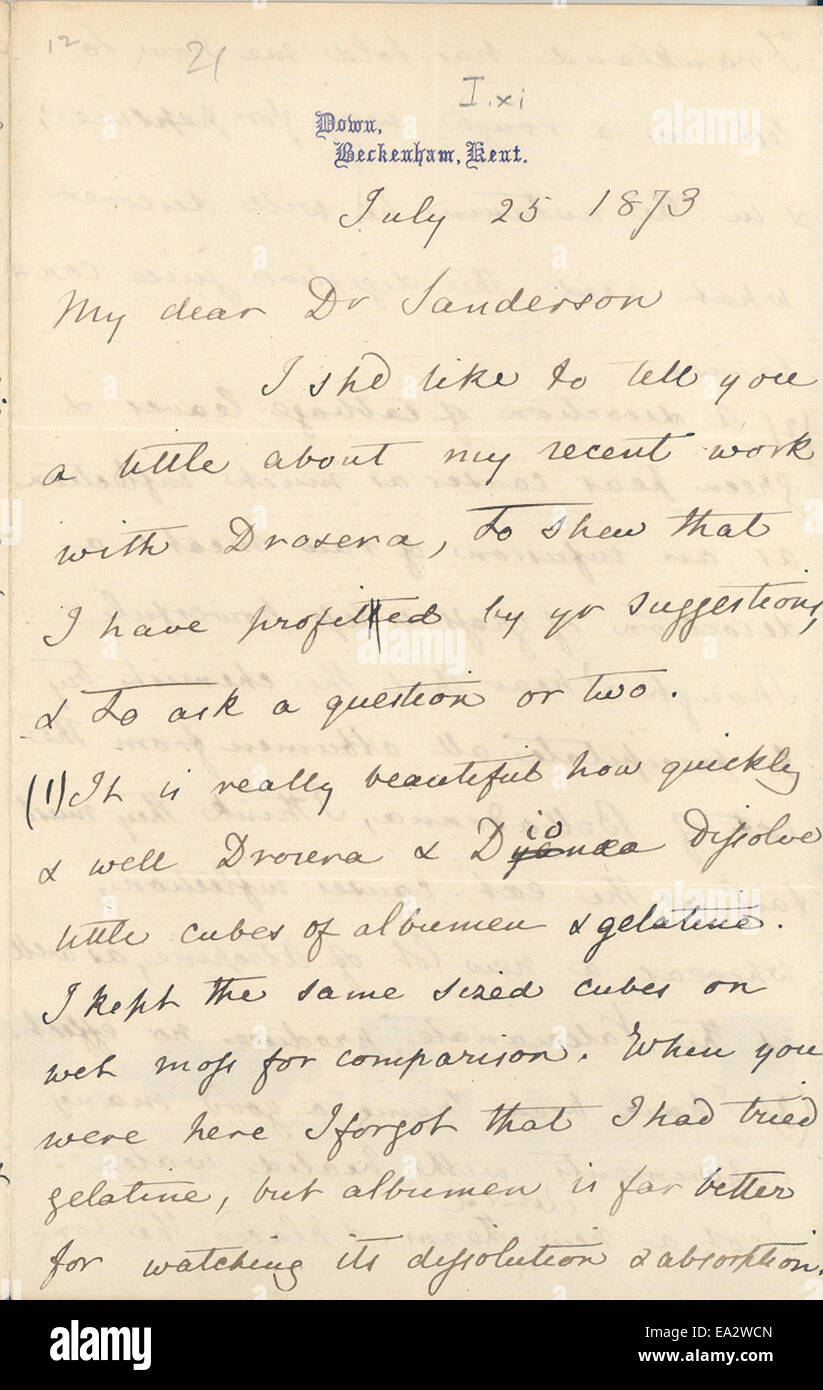 12
21
I.xi
Down,
Beckenham, Kent.
July 25 1873
My dear Dr Sanderson
I shd like to tell you
a little about my recent work
with Drosera, to shew that
I have profitted by yr suggestions,
& to ask a question or two.
(1) It is really beautiful how quickly
& well Drosera & Dionæa dissolve
little cubes of albumen & gelatine.
I kept the same sized cubes on
wet moss for comparison. When you
were here I forgot that I had tried
gelatine, but albumen is far better
for watching its dissolution & absorption.
alamy
Image ID: EA2WCN
www.alamy.com